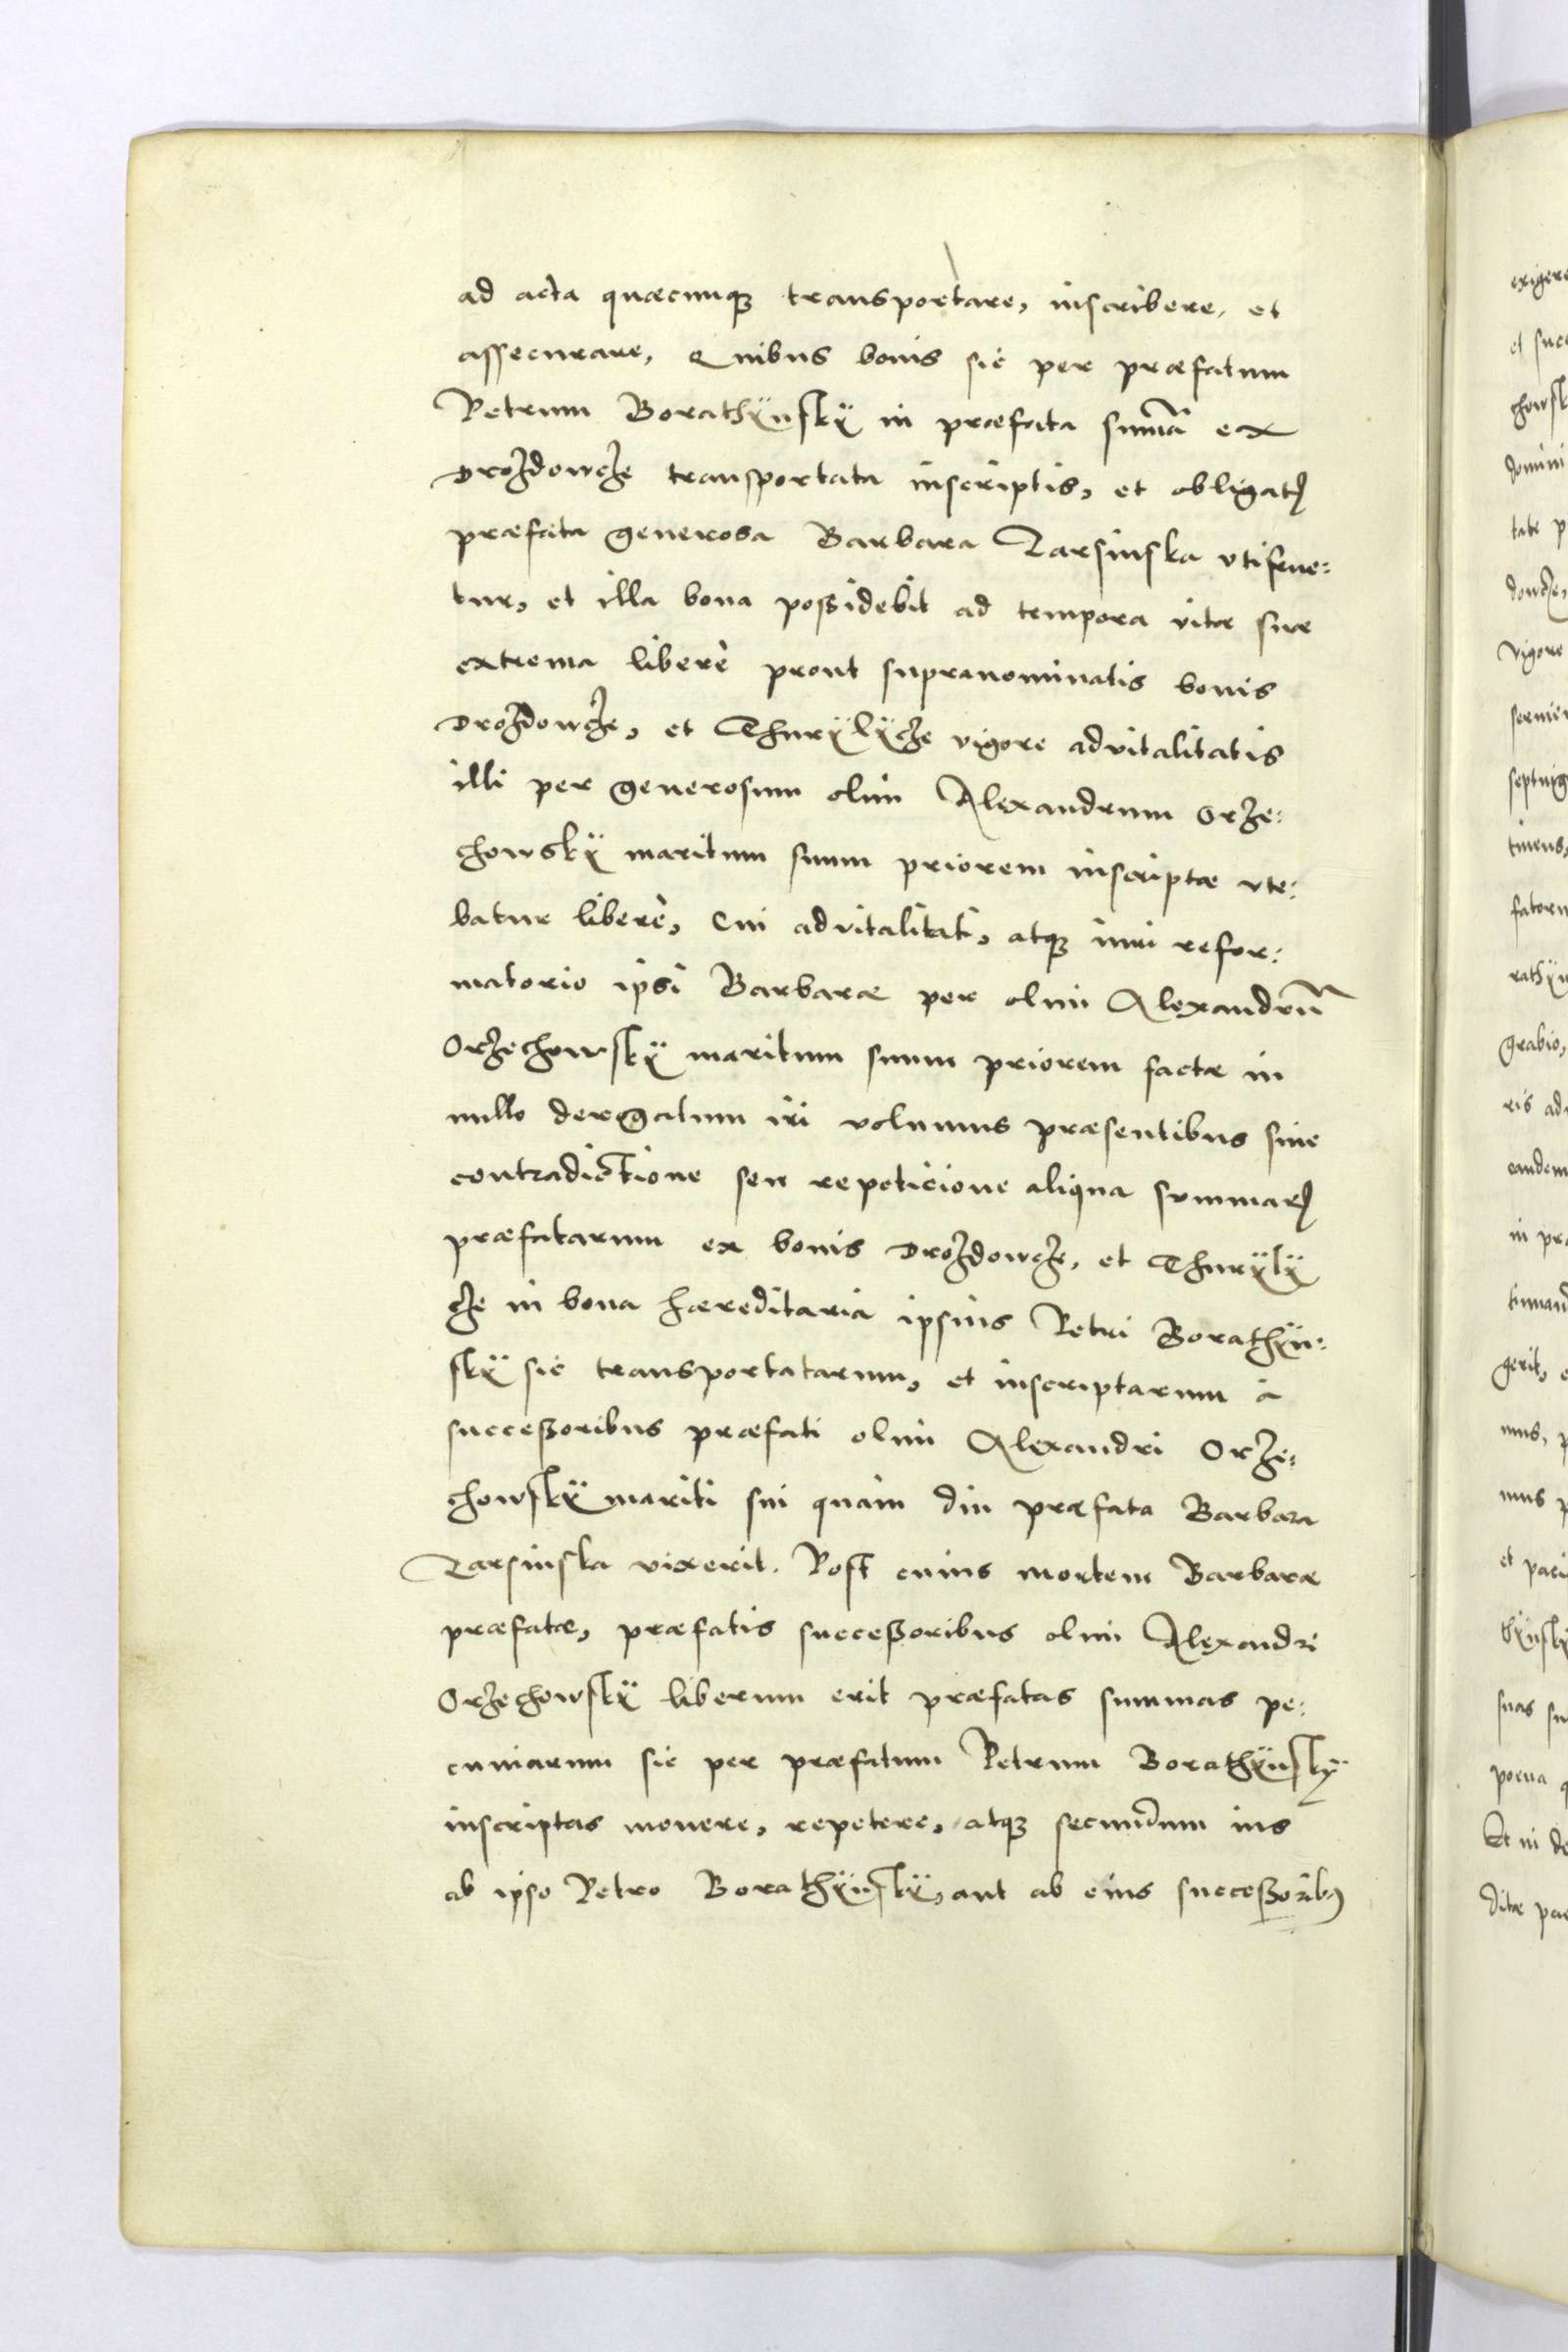 ad acta quæcunque transportare, inscribere, et
assecurare, Quibus bonis sic per præfatum
Petrum Borathÿnskÿ in præfata summa ex
Drozdowcze transportata inscriptis, et obligatis
præfata generosa Barbara Tarsinska utifrue:
tur, et illa bona possidebit ad tempora vitæ suæ
extrema liberè prout supranominatis bonis
Drozdowcze, et Thurÿlÿcze vigore advitalitatis
illi per generosum olim Alexandrum Orze:
chowskÿ maritum suum priorem inscriptæ ute:
batur liberè, Cui advitalitati, atque iuri refor:
matorio ipsi Barbaræ per olim Alexandrum
Orzechowskÿ maritum suum priorem factæ in
nullo derogatum iri volumus præsentibus sine
contradictione seu repeticione aliqua summarum
præfatarum ex bonis Drozdowcze, et Thurÿlÿ
cze in bona hæreditaria ipsius Petri Borathÿn:
skÿ sic transportatarum, et inscriptarum à
successoribus præfati olim Alexandri Orze:
chowskÿ mariti sui quam diu præfata Barbara
Tarsinska vixerit. Post cuius mortem Barbaræ
præfatæ, præfatis successoribus olim Alexandri
Orzechowskÿ liberum erit præfatas summas pe:
cuniarum sic per præfatum Petrum Borathÿnskÿ
inscriptas movere, repetere, atque secundum ius
ab ipso Petro Borathÿnskÿ, aut ab eius successoribus